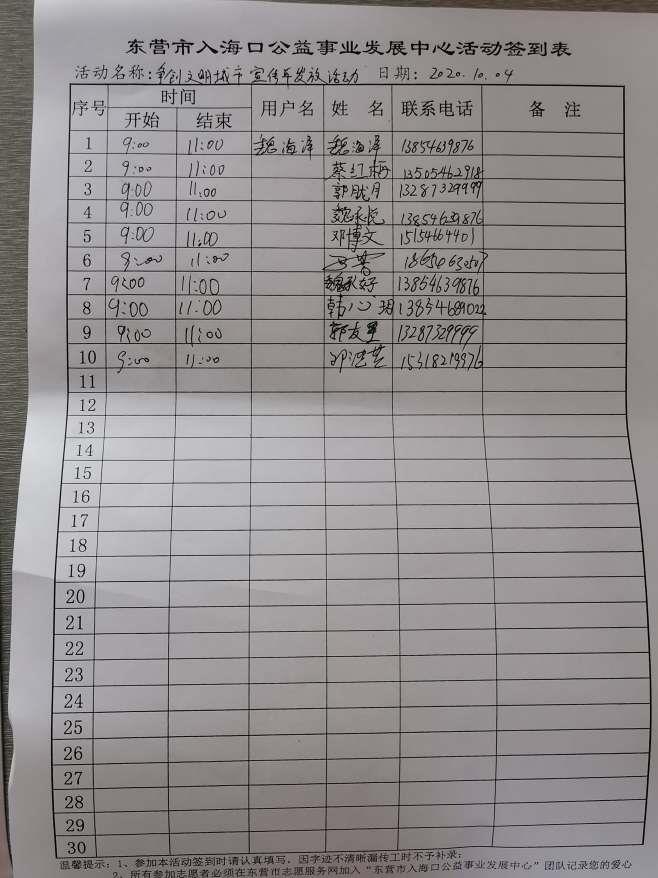 东营市入海口公益事业发展中心活动签到表
活动名称:争创文明城市宣传单发放活动 日期: 2020.10.04
序号 时间 用户名 姓名 联系电话 备注
开始 结束
1 9:00 11:00 魏海泽 魏海泽 13854639876
2 9:00 11:00 蔡红梅 13505462918
3 9:00 11:00 郭胧月 13287329999
4 9:00 11:00 13854639876
5 9:00 11:00 邓博文 15154664401
6 8:00 11:00
7 9:00 11:00 13854639876
8 9:00 11:00 韩心玥
9 9:00 11:00 郭友星 13287329999
10 9:00 11:00 15318219976
11
12
13
14
15
16
17
18
19
20
21
22
23
24
25
26
27
28
29
30
温馨提示:1、参加本活动签到时请认真填写,因字迹不清晰漏传工时不予补录;
2、所有参加志愿者必须在东营市志愿服务网加入“东营市入海口公益事业发展中心”团队记录您的爱心